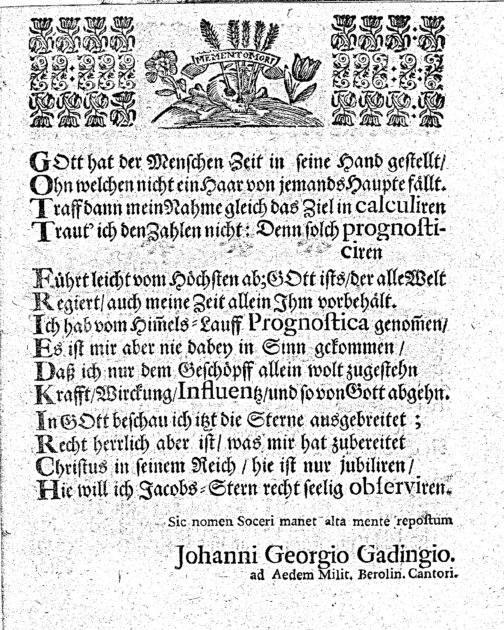 MEMENTO MORI
GOtt hat der Menschen Zeit in seine Hand gestellt/
Ohn welchen nicht ein Haar von jemands Haupte fällt.
Traff dann mein Nahme gleich das Ziel in calculiren
Traut' ich den Zahlen nicht: Denn solch prognosti-
ciren
Führt leicht vom Höchsten ab; GOtt ists/ der alle Welt
Regiert/ auch meine Zeit allein Ihm vorbehält.
Ich hab vom Him̃els-Lauff Prognostica genom̃en/
Es ist mir aber nie dabey in Sinn gekommen/
Daß ich nur dem Geschöpff allein wolt zugestehn
Krafft/ Wirckung/ Influentz/ und so von Gott abgehn.
In GOtt beschau ich itzt die Sterne ausgebreitet;
Recht herrlich aber ist/ was mir hat zubereitet
Christus in seinem Reich/ hie ist nur jubiliren/
Hie will ich Jacobs-Stern recht seelig observiren.
Sic nomen Soceri manet alta mente repostum
Johanni Georgio Gadingio.
ad Aedem Milit. Berolin. Cantori.